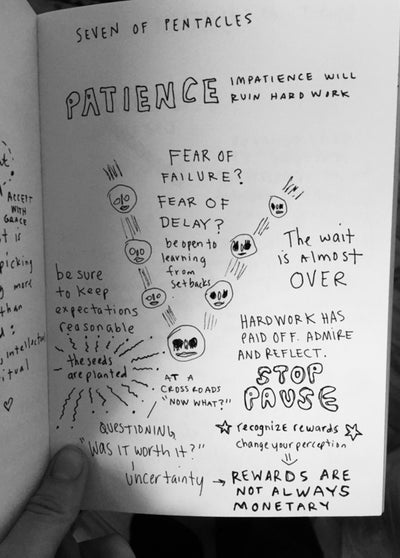 SEVEN OF PENTACLES
PATIENCE
IMPATIENCE WILL
RUIN HARD WORK
FEAR OF
FAILURE?
FEAR OF
DELAY?
be open to
learning
from
setbacks
The wait
is ALMOST
OVER
be sure
to keep
expectations
reasonable
the seeds
are planted
HARDWORK HAS
PAID OFF. ADMIRE
AND REFLECT.
STOP
PAUSE
AT A
CROSSROADS
"NOW WHAT?"
recognize rewards
change your perception
QUESTIONING
"WAS IT WORTH IT?"
uncertainty →
REWARDS ARE
NOT ALWAYS
MONETARY
ACCEPT
WITH
GRACE
picking
more
than